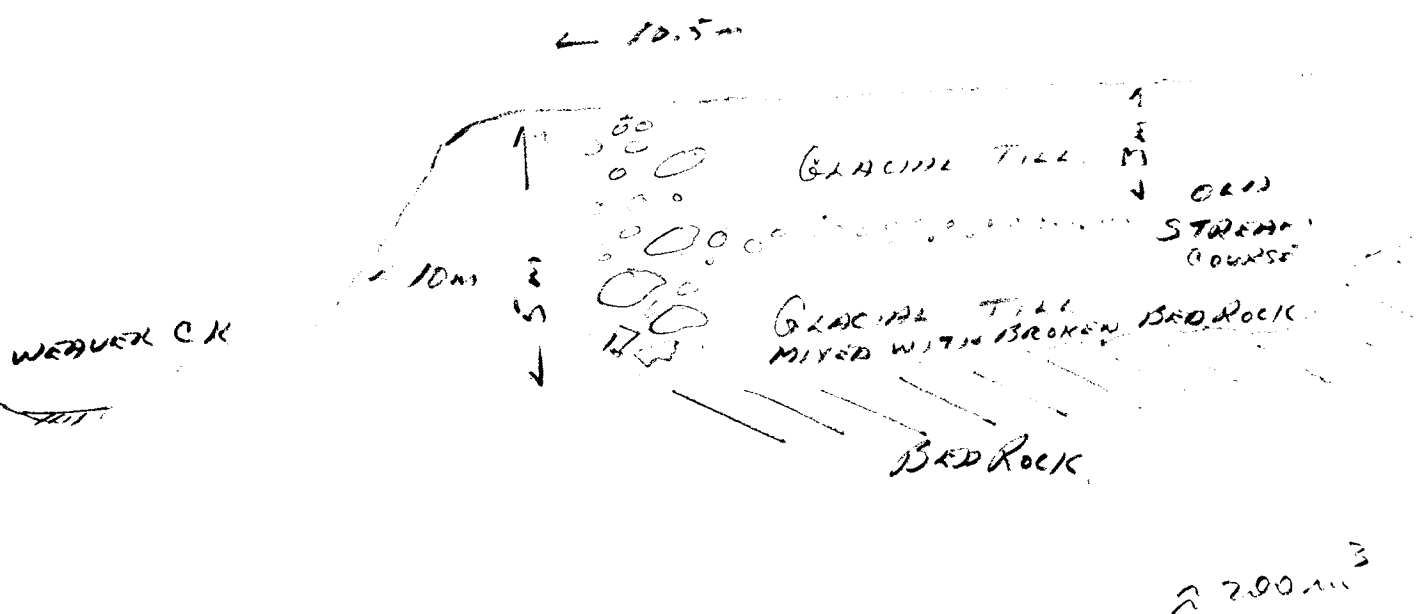 ← 10.5m
GLACIAL TILL
3m
OLD
STREAM
COURSE
10m
5m
WEAVER CK
GLACIAL TILL
MIXED WITH BROKEN BEDROCK
BEDROCK
≈ 200 m³